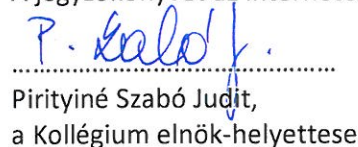 P. Szabó J.
Pirityiné Szabó Judit,
a Kollégium elnök-helyettese